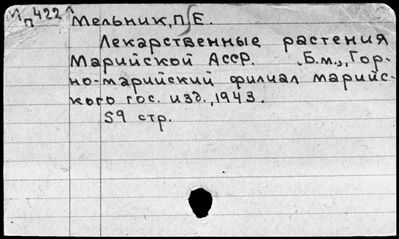 М п 422
Мельник, П. Е.
Лекарственные растения
Марийской АССР. Б.м., Гор-
но-марийский филиал марийс-
кого гос. изд., 1943.
59 стр.